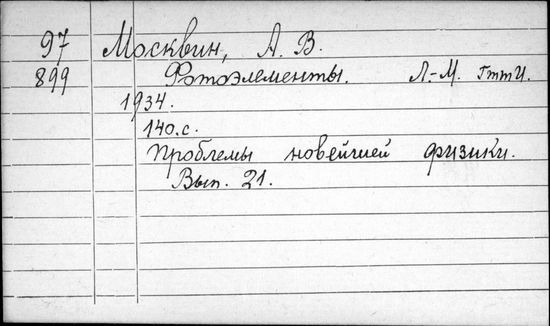 97 Москвин, А. В.
899 Фотоэлементы. Л.-М. ГТТИ.
1934.
140.с.
Проблемы новейшей физики.
Вып. 21.